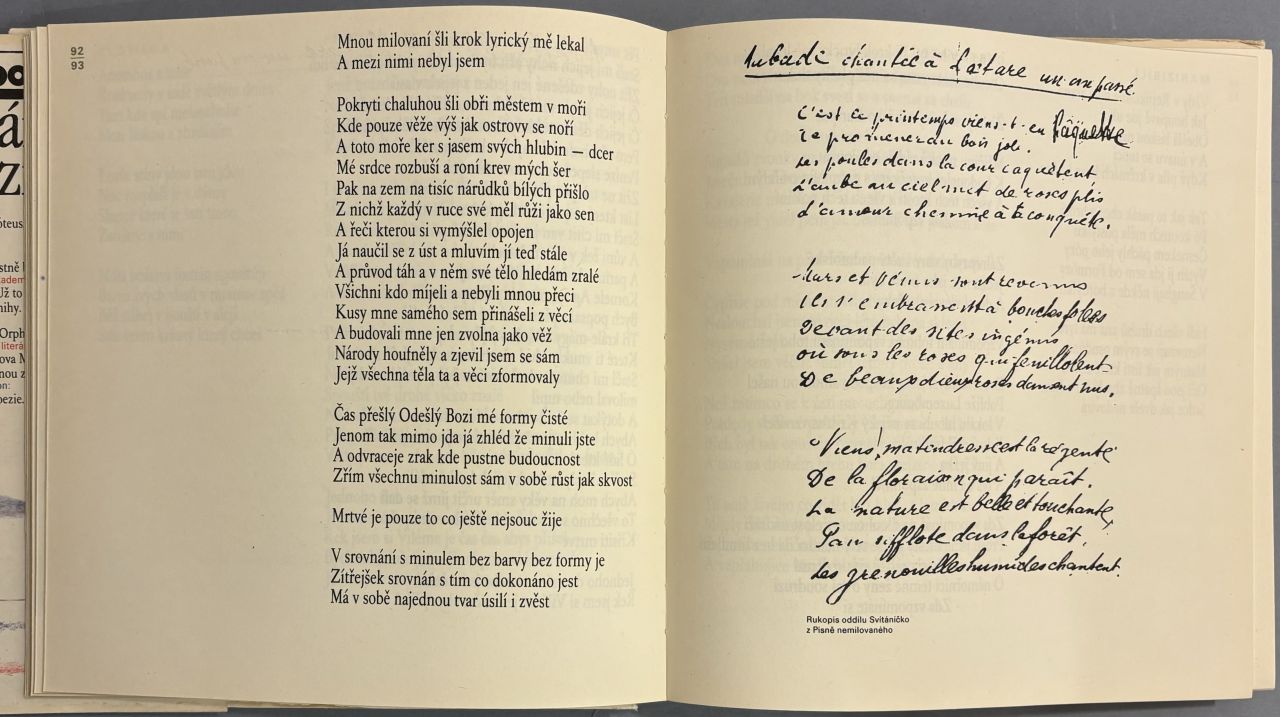 92
93
Mnou milovaní šli krok lyrický mě lekal
A mezi nimi nebyl jsem
Pokryti chaluhou šli obři městem v moři
Kde pouze věže výš jak ostrovy se noří
A toto moře ker s jasem svých hlubin — dcer
Mé srdce rozbuší a roní krev mých šer
Pak na zem na tisíc nárůdků bílých přišlo
Z nichž každý v ruce své měl růži jako sen
A řeči kterou si vymýšlel opojen
Já naučil se z úst a mluvím jí teď stále
A průvod táh a v něm své tělo hledám zralé
Všichni kdo míjeli a nebyli mnou přeci
Kusy mne samého sem přinášeli z věcí
A budovali mne jen zvolna jako věž
Národy houfněly a zjevil jsem se sám
Jejž všechna těla ta a věci zformovaly
Čas přešlý Odešlý Bozi mé formy čisté
Jenom tak mimo jda já zhléd že minuli jste
A odvraceje zrak kde pustne budoucnost
Zřím všechnu minulost sám v sobě růst jak skvost
Mrtvé je pouze to co ještě nejsouc žije
V srovnání s minulem bez barvy bez formy je
Zítřejšek srovnán s tím co dokonáno jest
Má v sobě najednou tvar úsilí i zvěst
Aubade chantée à Lætare un an passé
C'est le printemps viens-t-en Pâquette
Te promener au bois joli.
Les poules dans la cour caquètent
L'aube au ciel met de roses plis
L'amour chemine à ta conquête.
Mars et Vénus sont revenus
Ils s'embrassent à bouches folles
Devant des sites ingénus
où sous les roses qui feuillolent
De beaux dieux roses dansent nus.
Viens, ma tendresse est la régente
De la floraison qui paraît.
La nature est belle et touchante,
Pan sifflote dans la forêt.
Les grenouilles humides chantent.
Rukopis oddílu Svítáníčko
z Písně nemilovaného